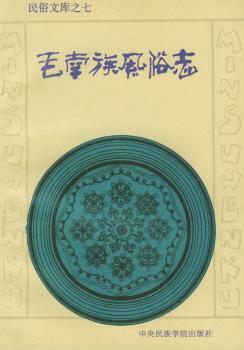 民俗文库之七
毛南族风俗志
MINSUWENKU
MINSUWENKU
中央民族学院出版社